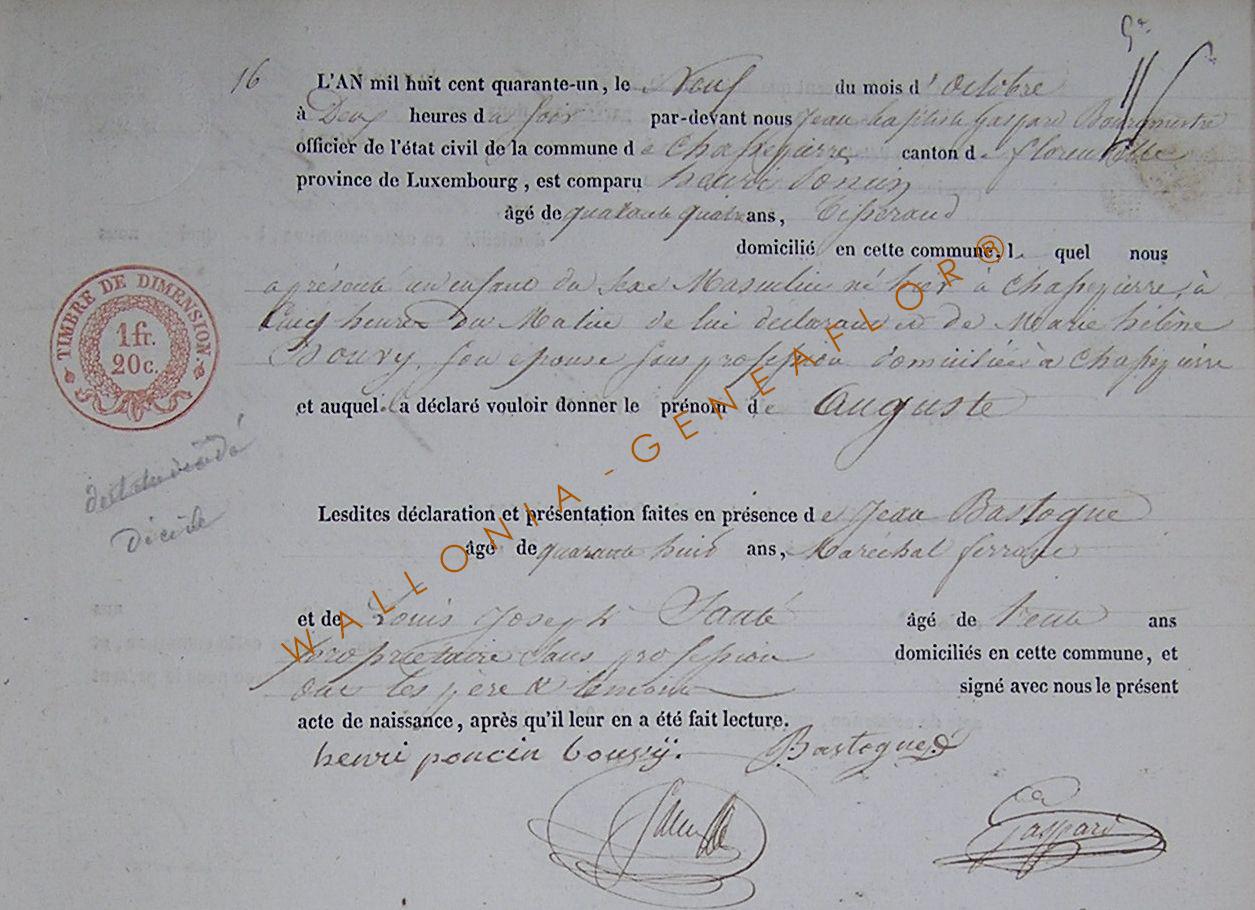 16
L'AN mil huit cent quarante-un, le Neuf du mois d'Octobre
à Deux heures du soir par-devant nous Jean baptiste Gaspard Bourgmestre
officier de l'état civil de la commune de Chassepierre canton de florenville
province de Luxembourg, est comparu henri Poncin
âgé de quarante quatre ans, Tisserand
domicilié en cette commune, l quel nous
a présenté un enfant du sexe Masculin né hier à Chassepierre, à
Cinq heures du Matin de lui déclarant et de Marie hélène
Bouvy, son épouse sans profession domiciliée à Chassepierre
et auquel a déclaré vouloir donner le prénom de Auguste
Lesdites déclaration et présentation faites en présence de Jean Bastogne
âgé de quarante huit ans, Maréchal ferrant
et de Louis Joseph âgé de trente ans
propriétaire sans profession domiciliés en cette commune, et
ont les père & témoins signé avec nous le présent
acte de naissance, après qu'il leur en a été fait lecture.
henri poncin bouvÿ. Bastogne
Gaspard
TIMBRE DE DIMENSION.
1 fr.
20 c.
WALLONIA - GENEAFLOR®